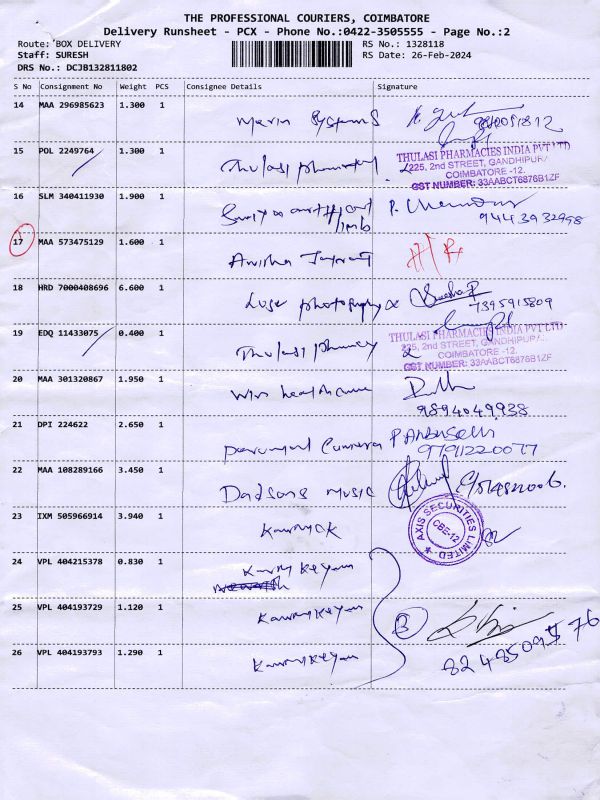 THE PROFESSIONAL COURIERS, COIMBATORE
Delivery Runsheet - PCX - Phone No.:0422-3505555 - Page No.:2
Route: BOX DELIVERY
Staff: SURESH
DRS No.: DCJB132811802
RS No.: 1328118
RS Date: 26-Feb-2024
S No Consignment No Weight PCS Consignee Details Signature
14 MAA 296985623 1.300 1 Systems
15 POL 2249764 1.300 1 Thulasi pharmacy
THULASI PHARMACIES INDIA PVT LTD
225, 2nd STREET, GANDHIPURAM
COIMBATORE -12.
GST NUMBER: 33AABCT6876B1ZF
16 SLM 340411930 1.900 1 limb 9443932998
17 MAA 573475129 1.600 1 Anisha
18 HRD 7000408696 6.600 1 photography 7395915809
19 EDQ 11433075 0.400 1 Thulasi phamacy
THULASI PHARMACIES INDIA PVT LTD
225, 2nd STREET, GANDHIPURAM
COIMBATORE -12.
GST NUMBER: 33AABCT6876B1ZF
20 MAA 301320867 1.950 1 Win healthcare
9894049938
21 DPI 224622 2.650 1 Camera P. Anbuselvi
9791220077
22 MAA 108289166 3.450 1 Dadsons music
23 IXM 505966914 3.940 1
AXIS SECURITIES LIMITED
CBE-12
24 VPL 404215378 0.830 1 Karthikeyan
25 VPL 404193729 1.120 1 Karthikeyan 3
26 VPL 404193793 1.290 1 Karthikeyan
8248509576